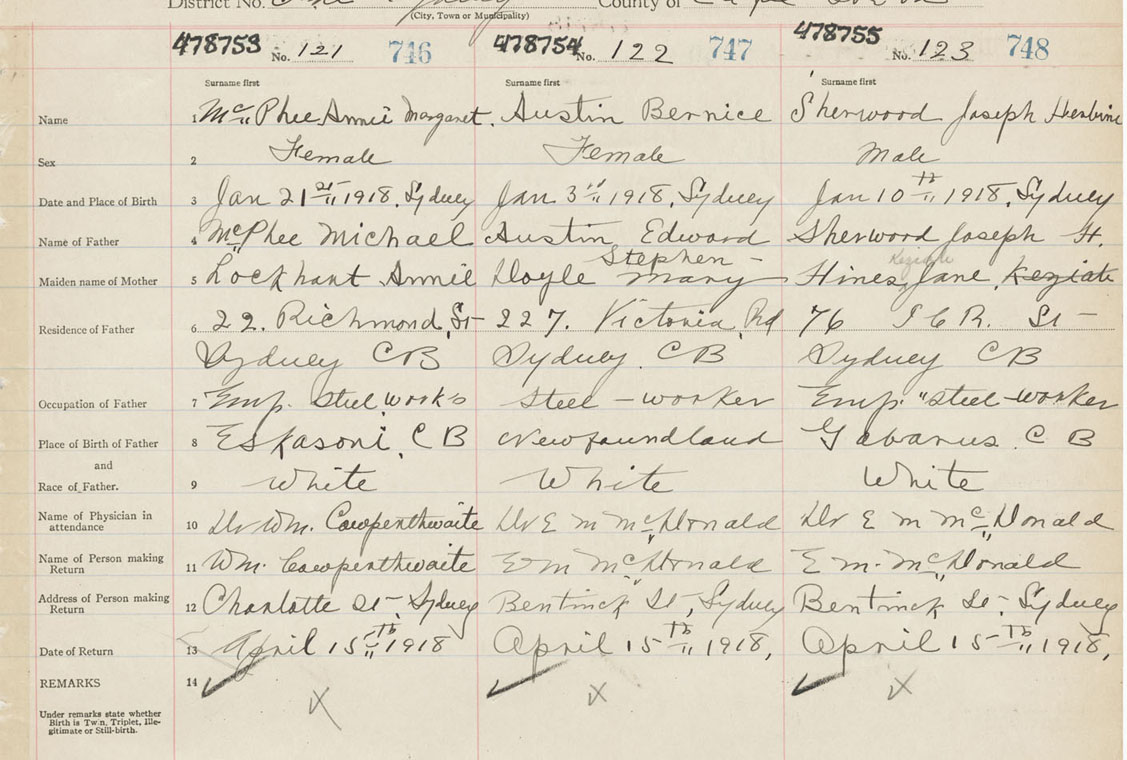 District No. Sydney County of Cape Breton
(City, Town or Municipality)
478753 No. 121 746 478754 No. 122 747 478755 No. 123 748
Surname first Surname first Surname first
Name 1 McPhee Annie Margaret. Austin Bernice Sherwood Joseph
Sex 2 Female Female Male
Date and Place of Birth 3 Jan 21st 1918, Sydney Jan 3rd 1918, Sydney Jan 10th 1918, Sydney
Name of Father 4 McPhee Michael Austin, Edward Stephen - Sherwood Joseph H.
Maiden name of Mother 5 Lockhart Annie Doyle Mary Hines, Keziah Jane, Keziah
Residence of Father 6 22. Richmond, St- 227. Victoria, Rd 76 S C R. St -
Sydney C B Sydney. C B Sydney C B
Occupation of Father 7 Emp. Steel works Steel - worker Emp. "Steel-worker
Place of Birth of Father 8 Eskasoni, C B Newfoundland Gabarus. C B
and
Race of Father. 9 White White White
Name of Physician in attendance 10 Dr Wm. Cowpenthwaite Dr E M McDonald Dr E M McDonald
Name of Person making Return 11 Wm. Cowpenthwaite E M McDonald E M. McDonald
Address of Person making Return 12 Charlotte St-, Sydney Bentinck St, Sydney Bentinck St-, Sydney
Date of Return 13 April 15th 1918 April 15th 1918, April 15th 1918,
REMARKS 14
X X X
Under remarks state whether
Birth is Twin, Triplet, Ille-
gitimate or Still-birth.